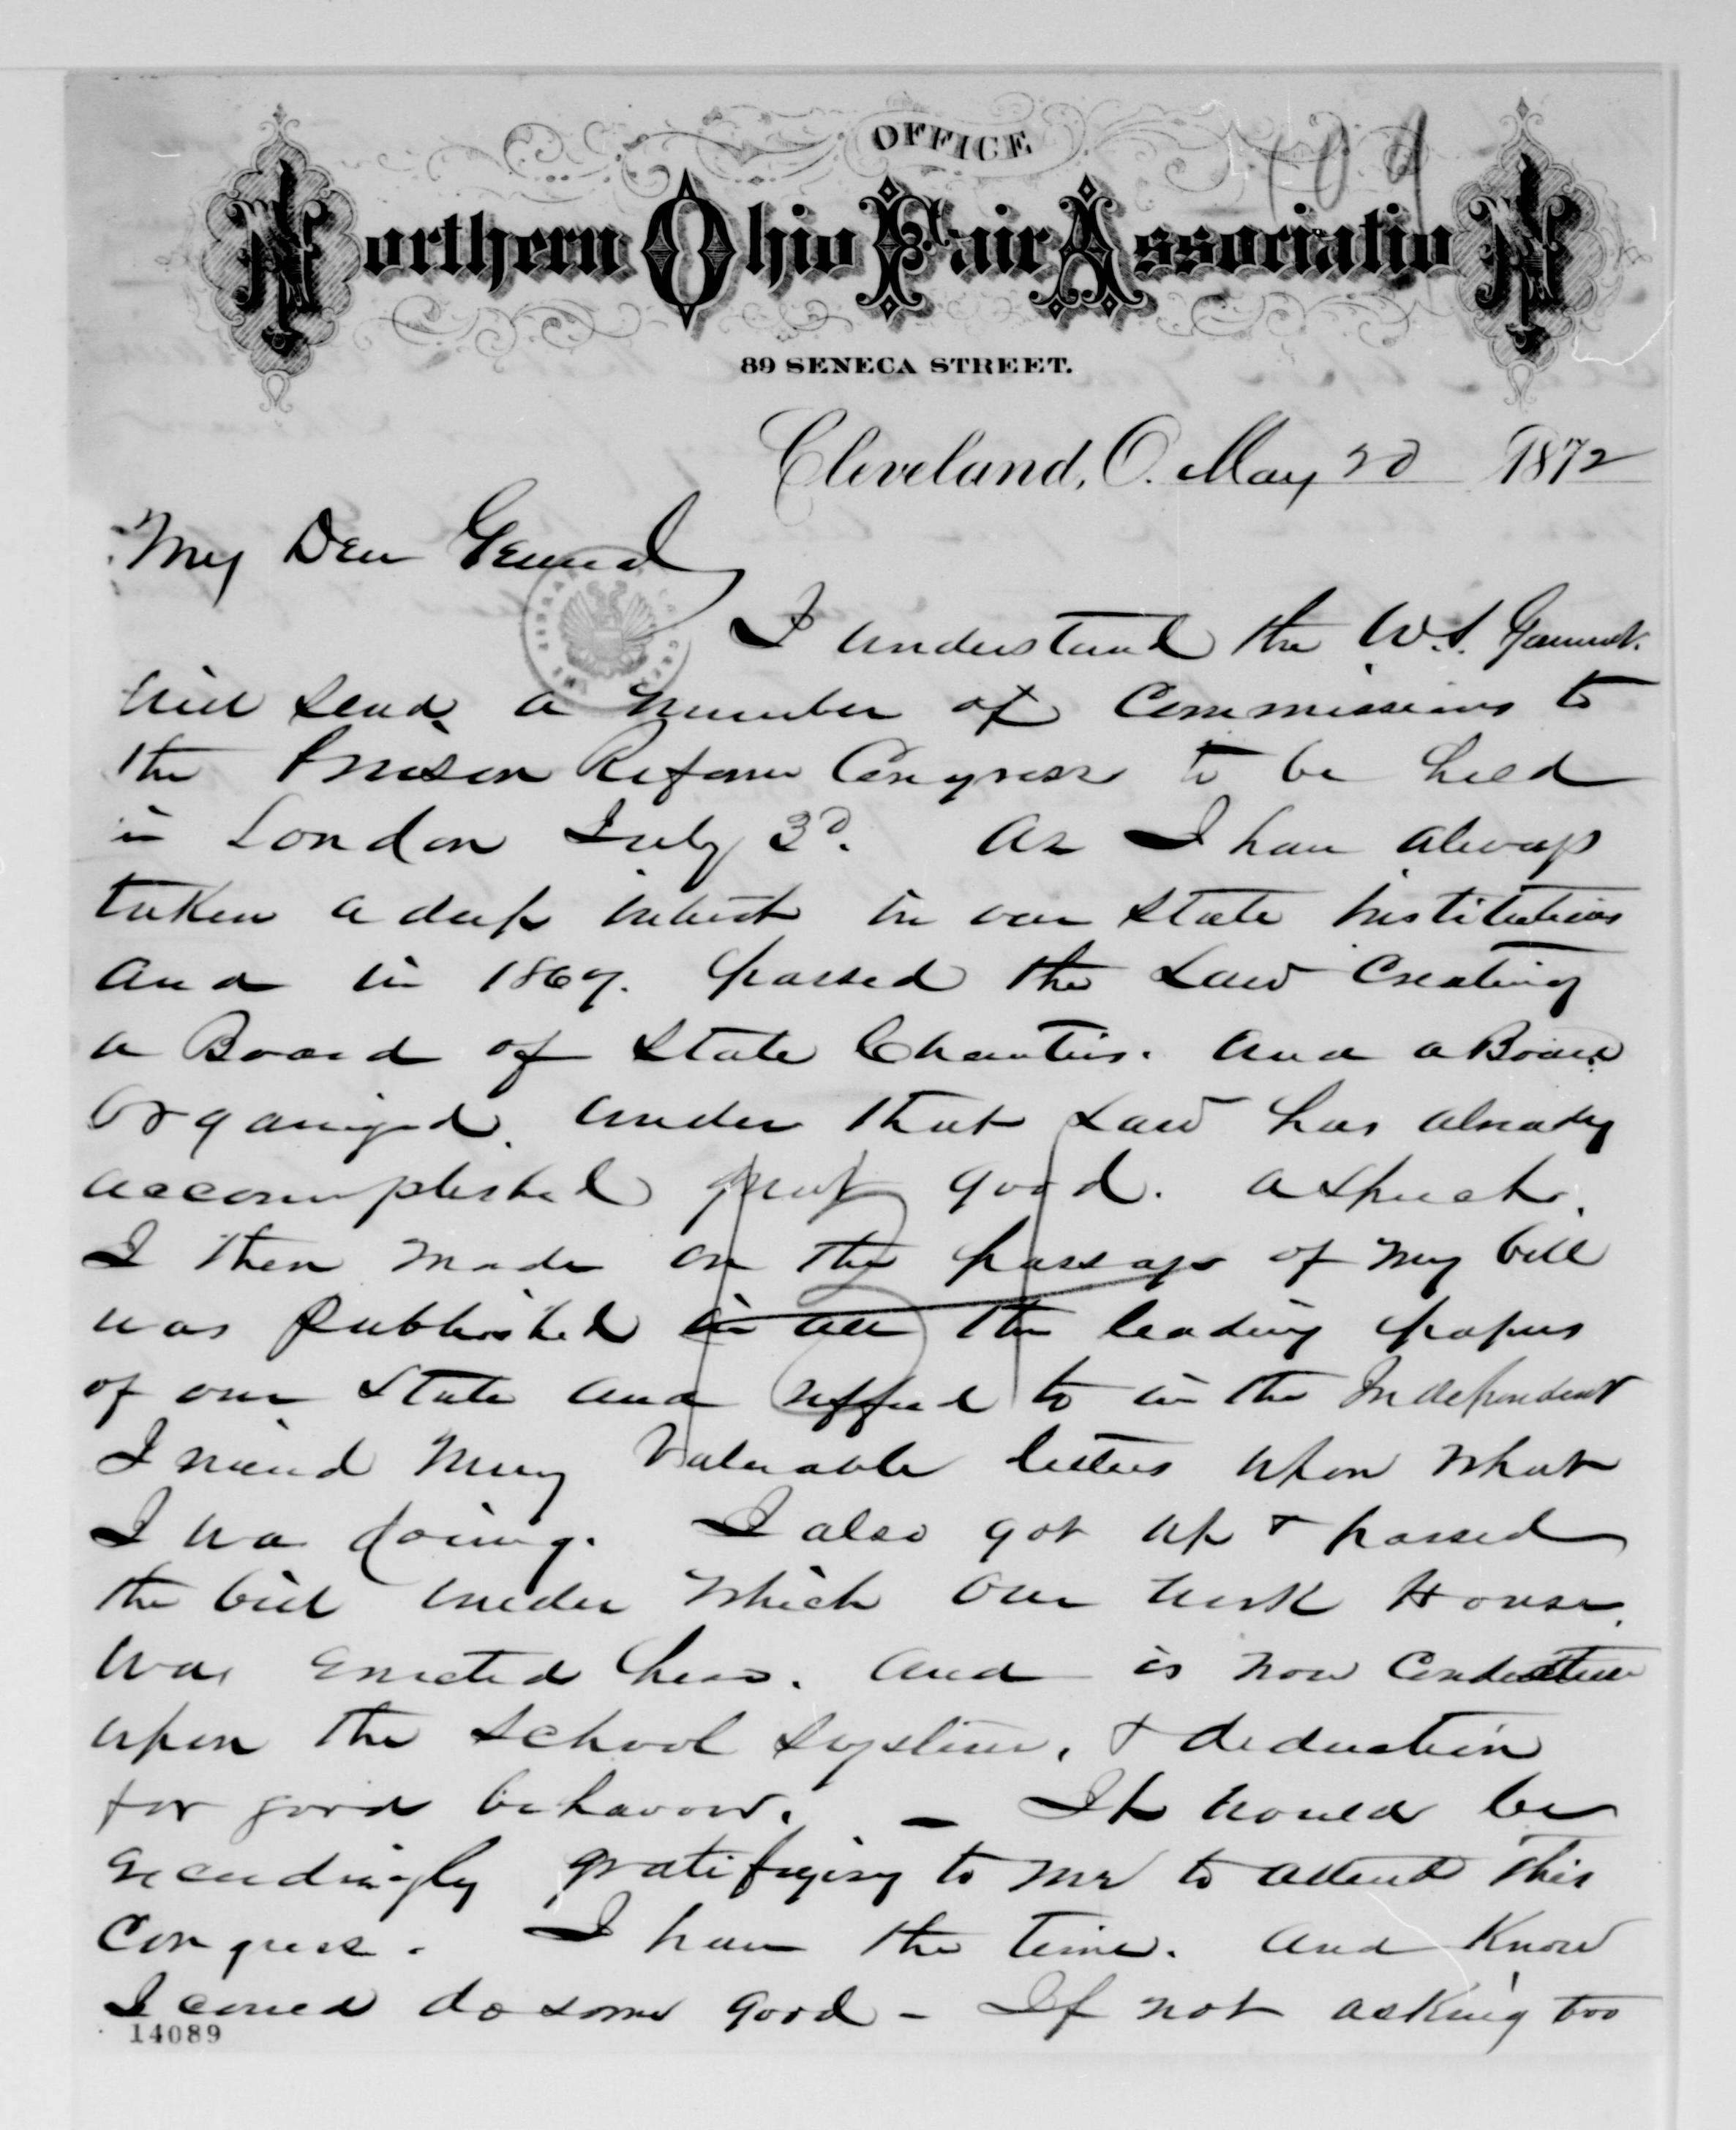 OFFICE
109
Northern Ohio Fair Association
89 SENECA STREET.
Cleveland, O. May 20 1872
My Dear General
THE LIBRARY OF CONGRESS
I understand the U.S. Governmt.
will send a number of Commissions to
the Prison Reform Congress to be held
in London July 3d. As I have always
taken a deep interest in our State institutions
and in 1867. passed the Law Creating
a Board of State Charities. and a Board
organized under that Law has already
accomplished great good. a speech.
I then made on the passage of my bill
was published in all the leading papers
of our State and reffred to in the Independent
I received many valuable letters upon what
I was doing. I also got up & passed
the bill under which our Work House
was erected here. and is now conducted
upon the School system, & deduction
for good behavour. — It would be
exceedingly gratifying to me to attend this
Congress. I have the time. and Know
I could do some good - If not asking too
14089